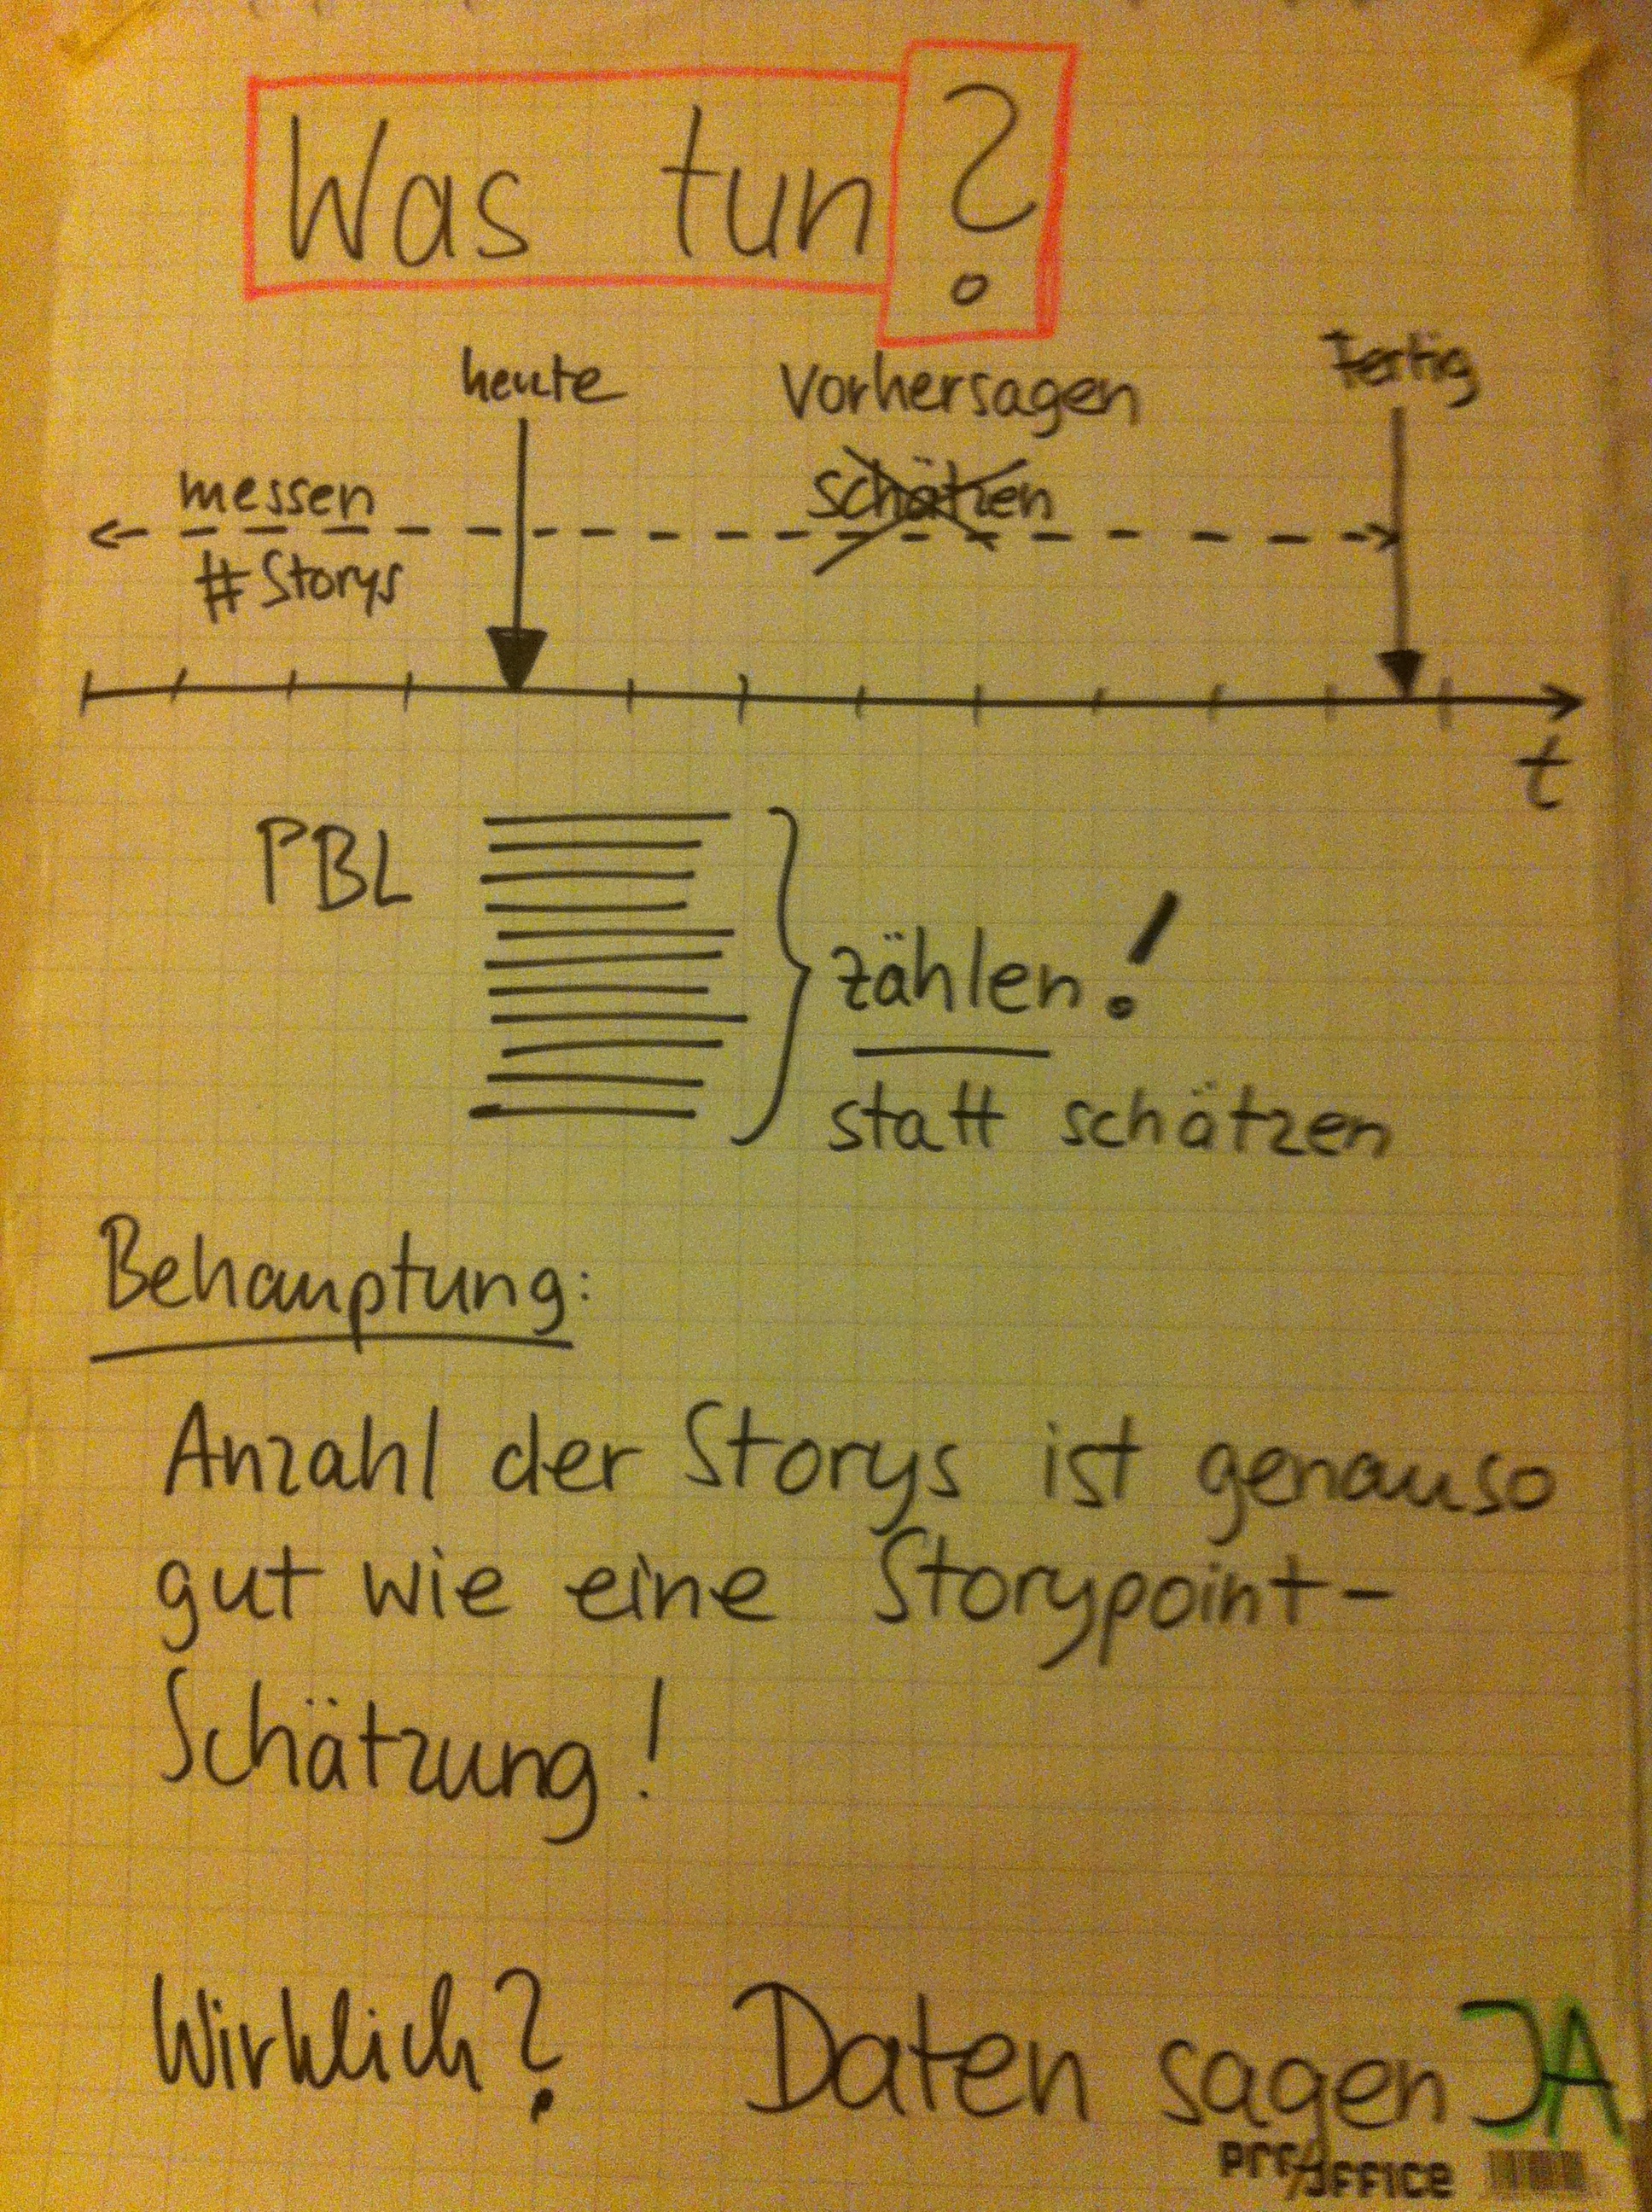 Was tun?
heute
Vorhersagen
Fertig
messen
schätzen
#Storys
t
PBL
zählen!
statt schätzen
Behauptung:
Anzahl der Storys ist genauso
gut wie eine Storypoint-
Schätzung!
Wirklich? Daten sagen JA